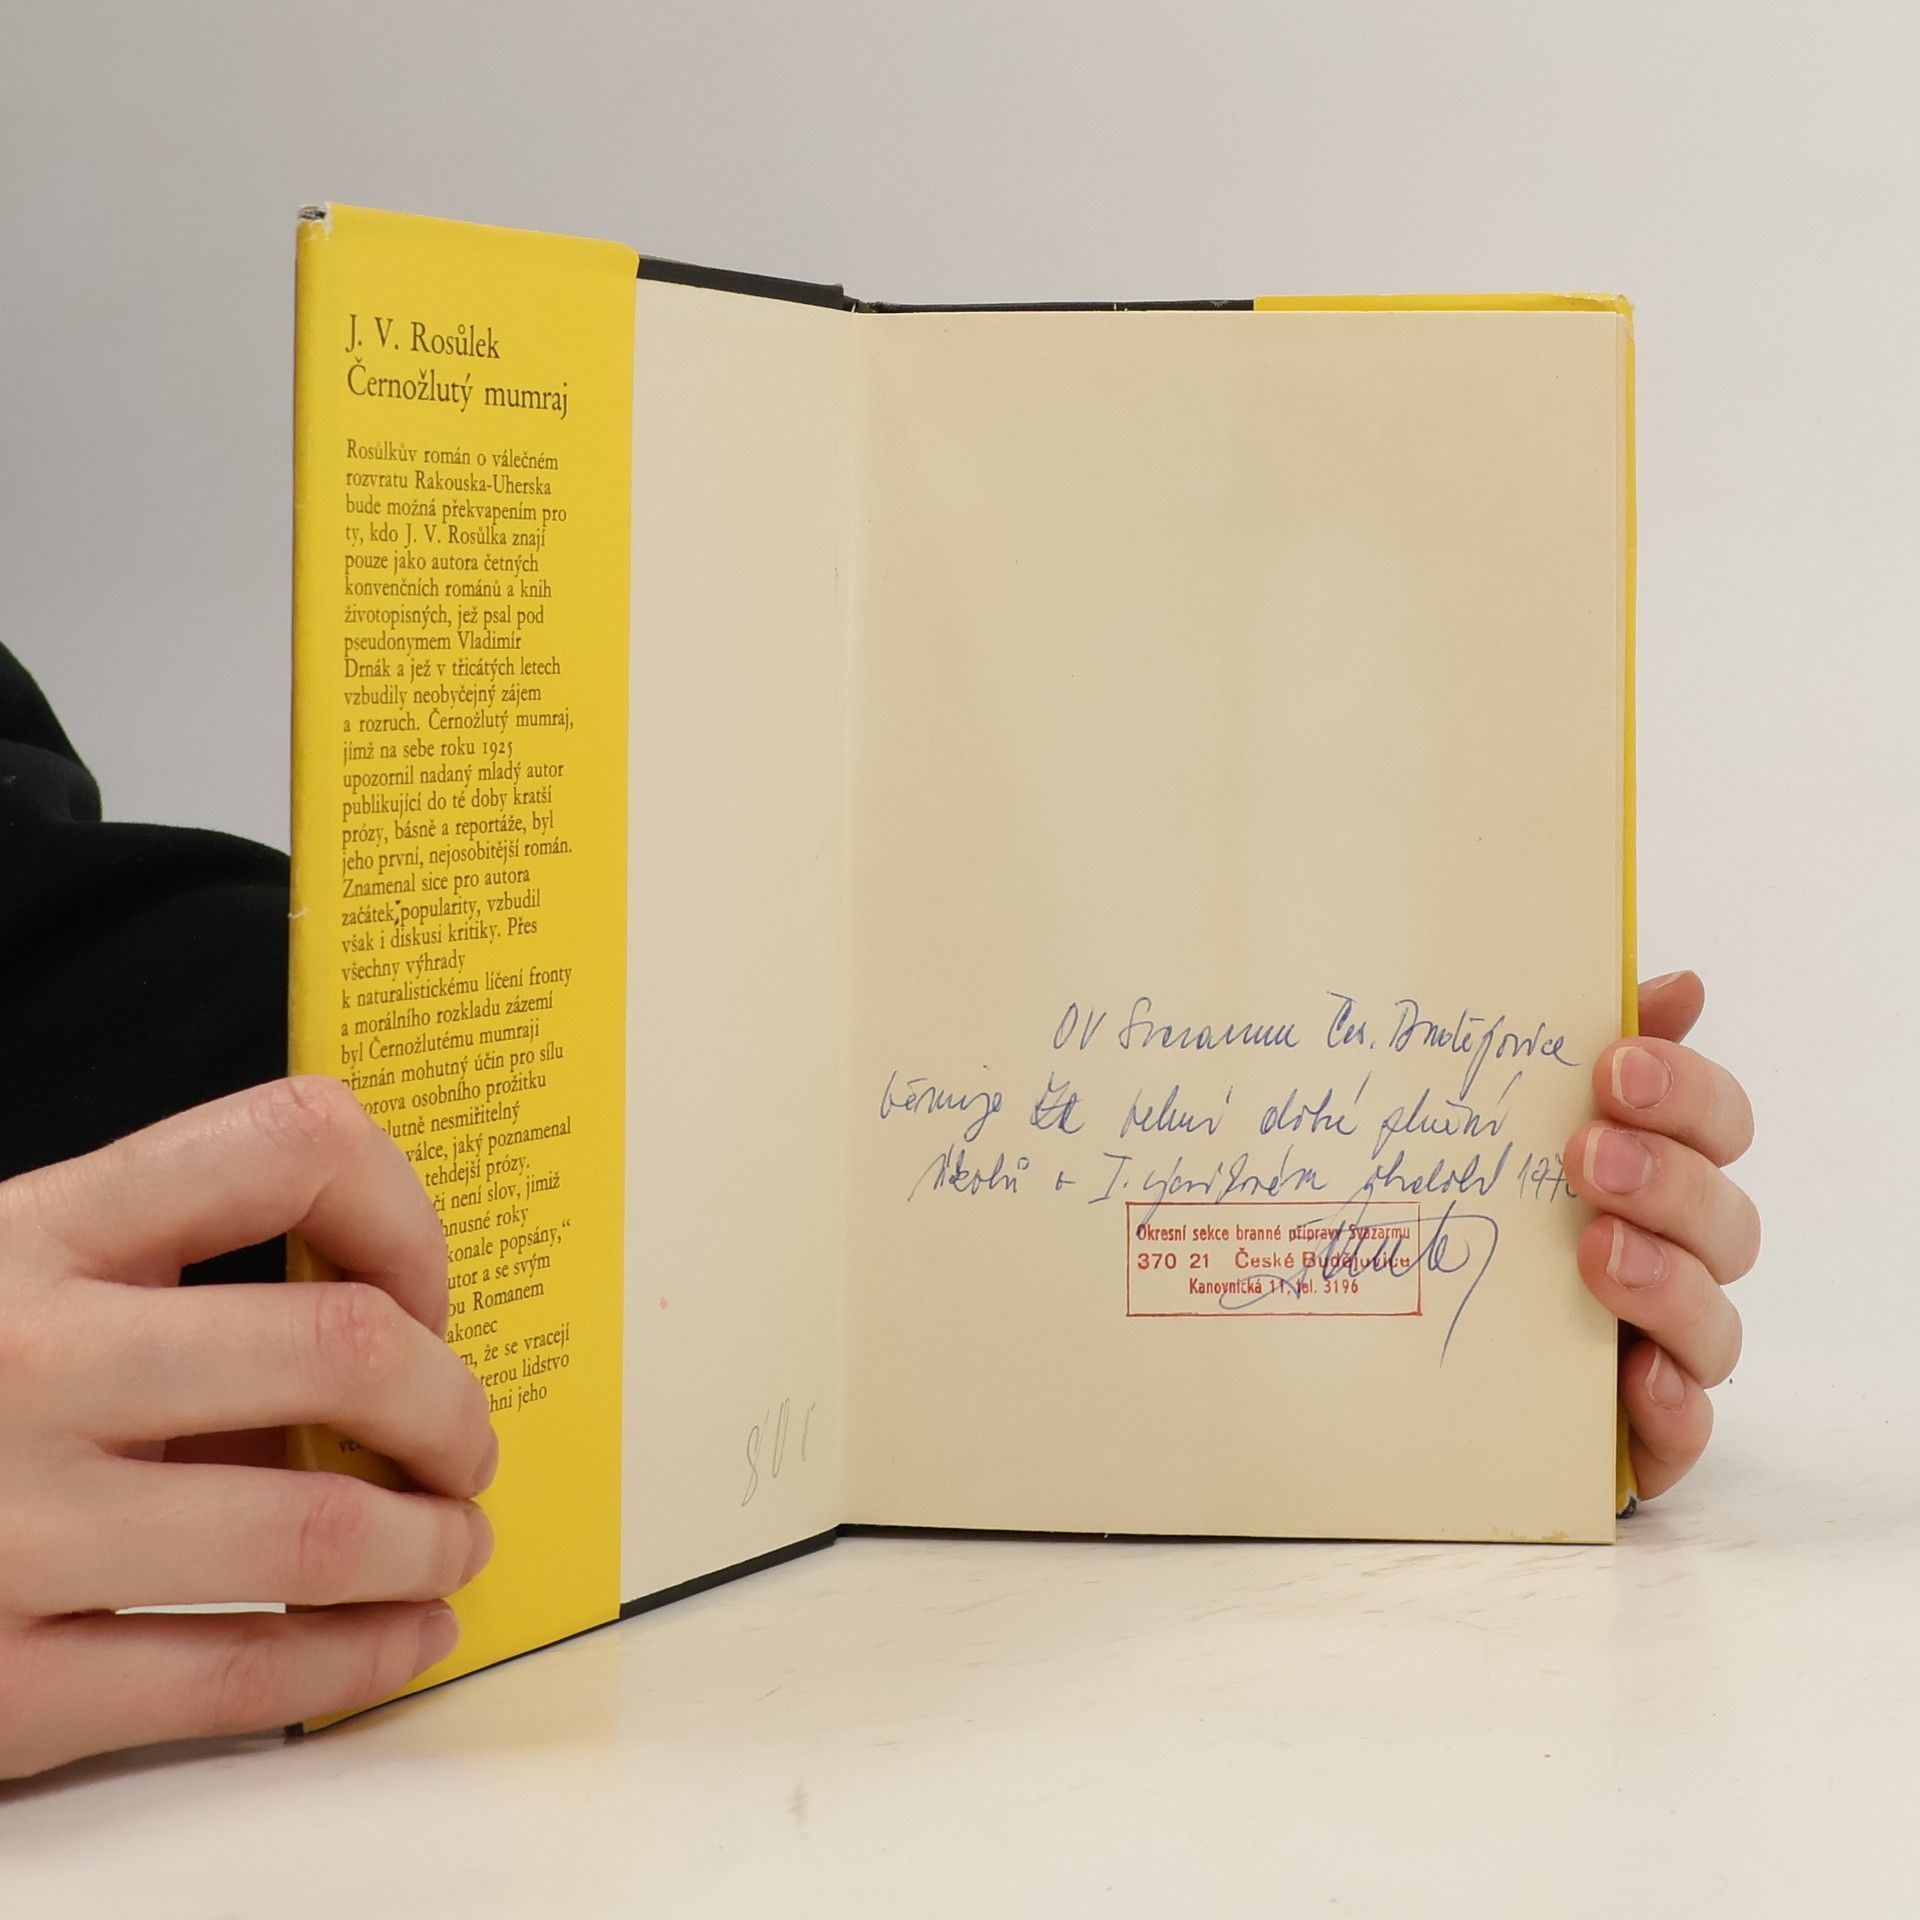 J. V. Rosůlek
Černožlutý mumraj
Rosůlkův román o válečném
rozvratu Rakouska-Uherska
bude možná překvapením pro
ty, kdo J. V. Rosůlka znají
pouze jako autora četných
konvenčních románů a knih
životopisných, jež psal pod
pseudonymem Vladimír
Drnák a jež v třicátých letech
vzbudily neobyčejný zájem
a rozruch. Černožlutý mumraj,
jímž na sebe roku 1925
upozornil nadaný mladý autor
publikující do té doby kratší
prózy, básně a reportáže, byl
jeho první, nejosobitější román.
Znamenal sice pro autora
začátek popularity, vzbudil
však i diskusi kritiky. Přes
všechny výhrady
k naturalistickému líčení fronty
a morálního rozkladu zázemí
byl Černožlutému mumraji
přiznán mohutný účin pro sílu
orova osobního prožitku
lutně nesmiřitelný
válce, jaký poznamenal
tehdejší prózy.
či není slov, jimiž
hnusné roky
konale popsány,“
utor a se svým
ou Romanem
akonec
m, že se vracejí
terou lidstvo
hni jeho
801
OV Svazarmu Čes. Budějovice
věnuje za velmi dobré plnění
úkolů v I. pololetí 197
Okresní sekce branné přípravy Svazarmu
370 21 České Budějovice
Kanovnická 11, tel. 3196